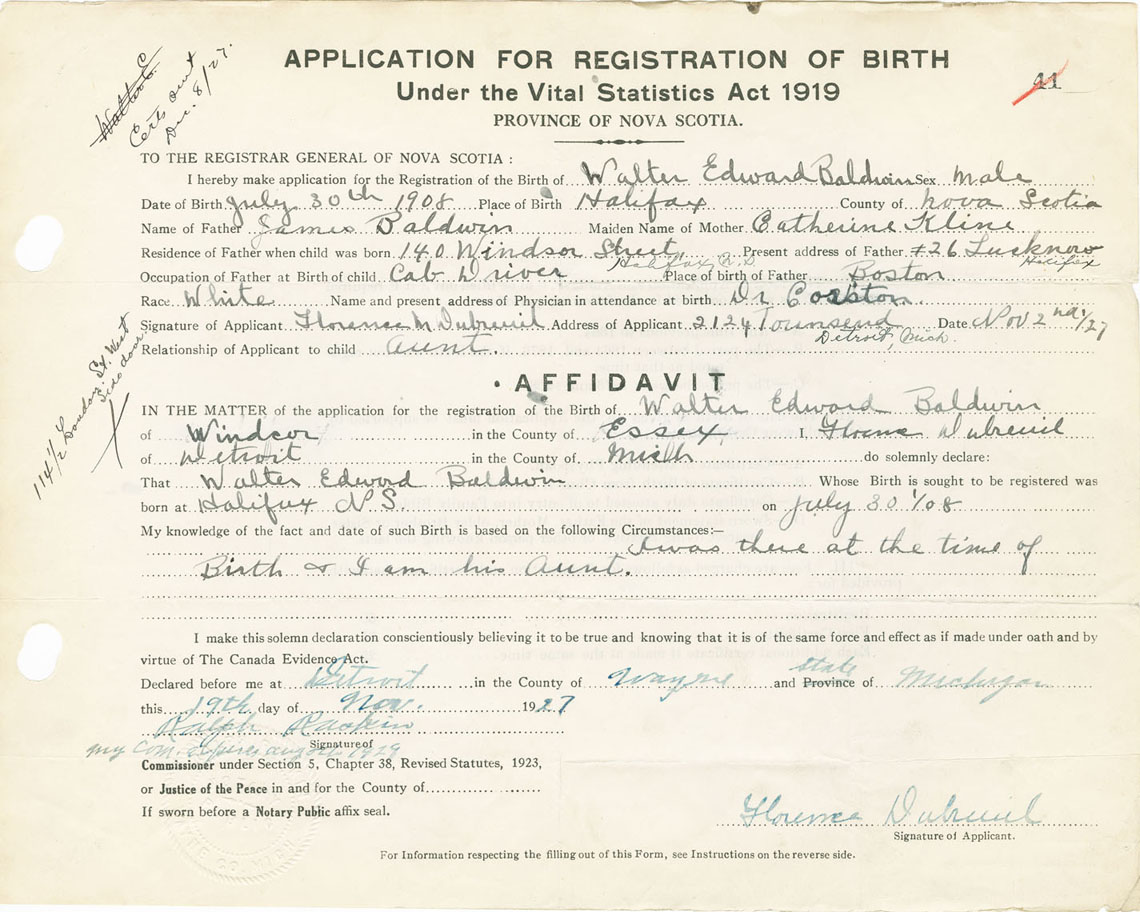 APPLICATION FOR REGISTRATION OF BIRTH
Under the Vital Statistics Act 1919
PROVINCE OF NOVA SCOTIA.
41
Certs out
Dec. 8/27.
TO THE REGISTRAR GENERAL OF NOVA SCOTIA :
I hereby make application for the Registration of the Birth of Walter Edward Baldwin Sex Male
Date of Birth July 30th 1908 Place of Birth Halifax County of Nova Scotia
Name of Father James Baldwin Maiden Name of Mother Catherine Kline
Residence of Father when child was born 140 Windsor Street Present address of Father #26 Lucknow
Halifax N.S Halifax
Occupation of Father at Birth of child Cab Driver Place of birth of Father Boston
Race White Name and present address of Physician in attendance at birth Dr
Signature of Applicant Florence M Dubreuil Address of Applicant 2124 Townsend Date Nov 2nd/27
Detroit, Mich.
Relationship of Applicant to child Aunt.
114 1/2 London St. West
AFFIDAVIT
IN THE MATTER of the application for the registration of the Birth of Walter Edward Baldwin
of Windsor in the County of Essex, I, Florence Dubreuil
of Detroit in the County of Mich do solemnly declare:
That Walter Edword Baldwin Whose Birth is sought to be registered was
born at Halifax N.S. on July 30/08
My knowledge of the fact and date of such Birth is based on the following Circumstances:—
I was there at the time of
Birth & I am his Aunt.
I make this solemn declaration conscientiously believing it to be true and knowing that it is of the same force and effect as if made under oath and by
virtue of The Canada Evidence Act.
state
Declared before me at Detroit in the County of Wayne and Province of Michigan
this 19th day of Nov. 1927
Ralph Raskin
my com. expires aug 1929
Signature of
Commissioner under Section 5, Chapter 38, Revised Statutes, 1923,
or Justice of the Peace in and for the County of
If sworn before a Notary Public affix seal.
Florence Dubreuil
Signature of Applicant.
For Information respecting the filling out of this Form, see Instructions on the reverse side.